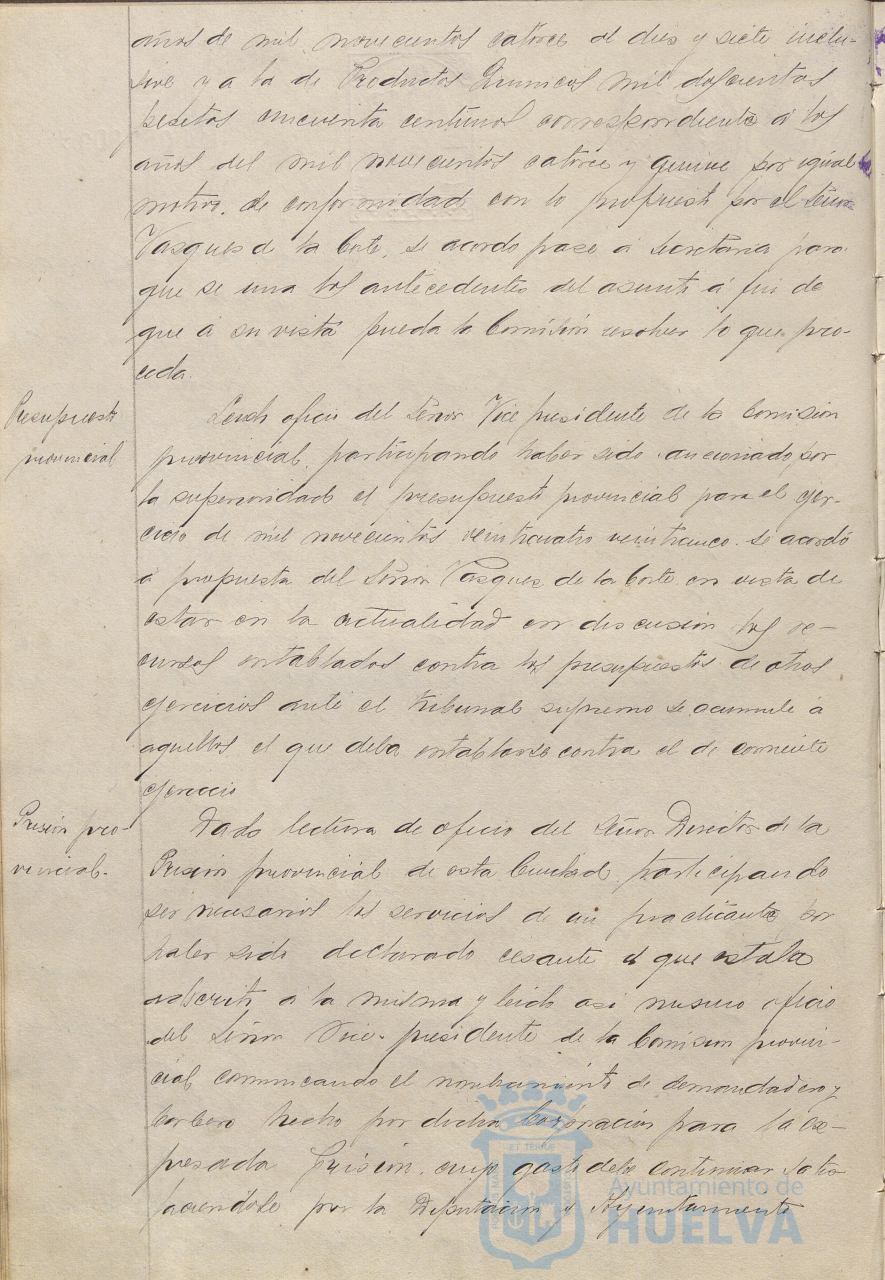 años de mil novecientos catorce al diez y siete inclu-
sive y a la de Productos Quimicos mil doscientas
pesetas cincuenta centimos correspondiente á los
años del mil novecientos catorce y quince por igual
motivo. de conformidad con lo propuesto por el Señor
Vasques de la Corte, se acordo pase á Secretaria para
que se una los antecedentes del asunto á fin de
que á su vista pueda la Comisión resolver lo que pro-
ceda.
Presupuesto
provincial
Leido oficio del Señor Vice presidente de la Comision
provincial, participando haber sido sancionado por
la superioridad el presupuesto provincial para el ejer-
cicio de mil novecientos veinticuatro veinticinco. se acordó
á propuesta del Señor Vasques de la Corte en vista de
estar en la actualidad en discusion los re-
cursos entablados contra los presupuestos de otros
ejercicios ante el Tribunal supremo se acumule á
aquellos el que deba entablarse contra el de corriente
ejercicio
Prisión pro-
vincial.
Dada lectura de oficio del Señor Director de la
Prision provincial de esta Ciudad participando
ser necesarios los servicios de un practicante por
haber sido declarado cesante el que estaba
adscrito á la misma y leido asi mismo oficio
del Señor Vice-presidente de la Comision provin-
cial comunicando el nombramiento de demandadero y
barbero hecho por dicha Corporacion para la ex-
presada Prisión, cuyo gasto debe continuar satis-
faciendose por la Diputacion y Ayuntamiento
Ayuntamiento de
HUELVA